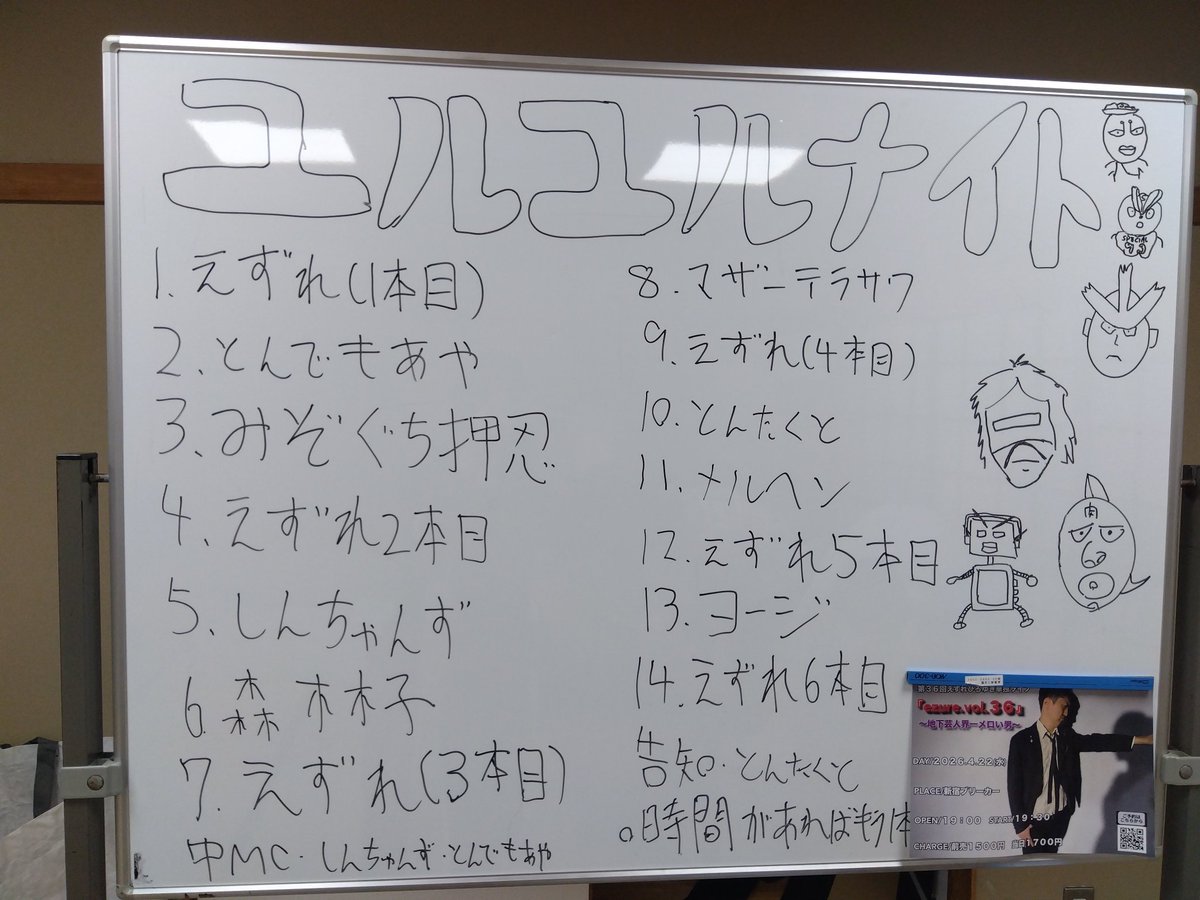 ユルユルナイト
1. えずれ(1本目)
2. とんでもあや
3. みぞぐち押忍
4. えずれ2本目
5. しんちゃんず
6. 森林林子
7. えずれ(3本目)
中MC・しんちゃんず・とんでもあや
8. マザーテラサワ
9. えずれ(4本目)
10. とんたくと
11. メルヘン
12. えずれ5本目
13. ヨージ
14. えずれ6本目
告知・とんたくと
。時間があればもう1本
SPECIAL
肉
第36回えずれひろゆき単独ライブ
『ezure.vol.36』
～地下芸人界一メロい男～
DAY/2026.4.22(水)
PLACE/新宿ブリーカー
OPEN/19:00 START/19:30
CHARGE/前売1500円 当日1700円
ご予約は
こちらから